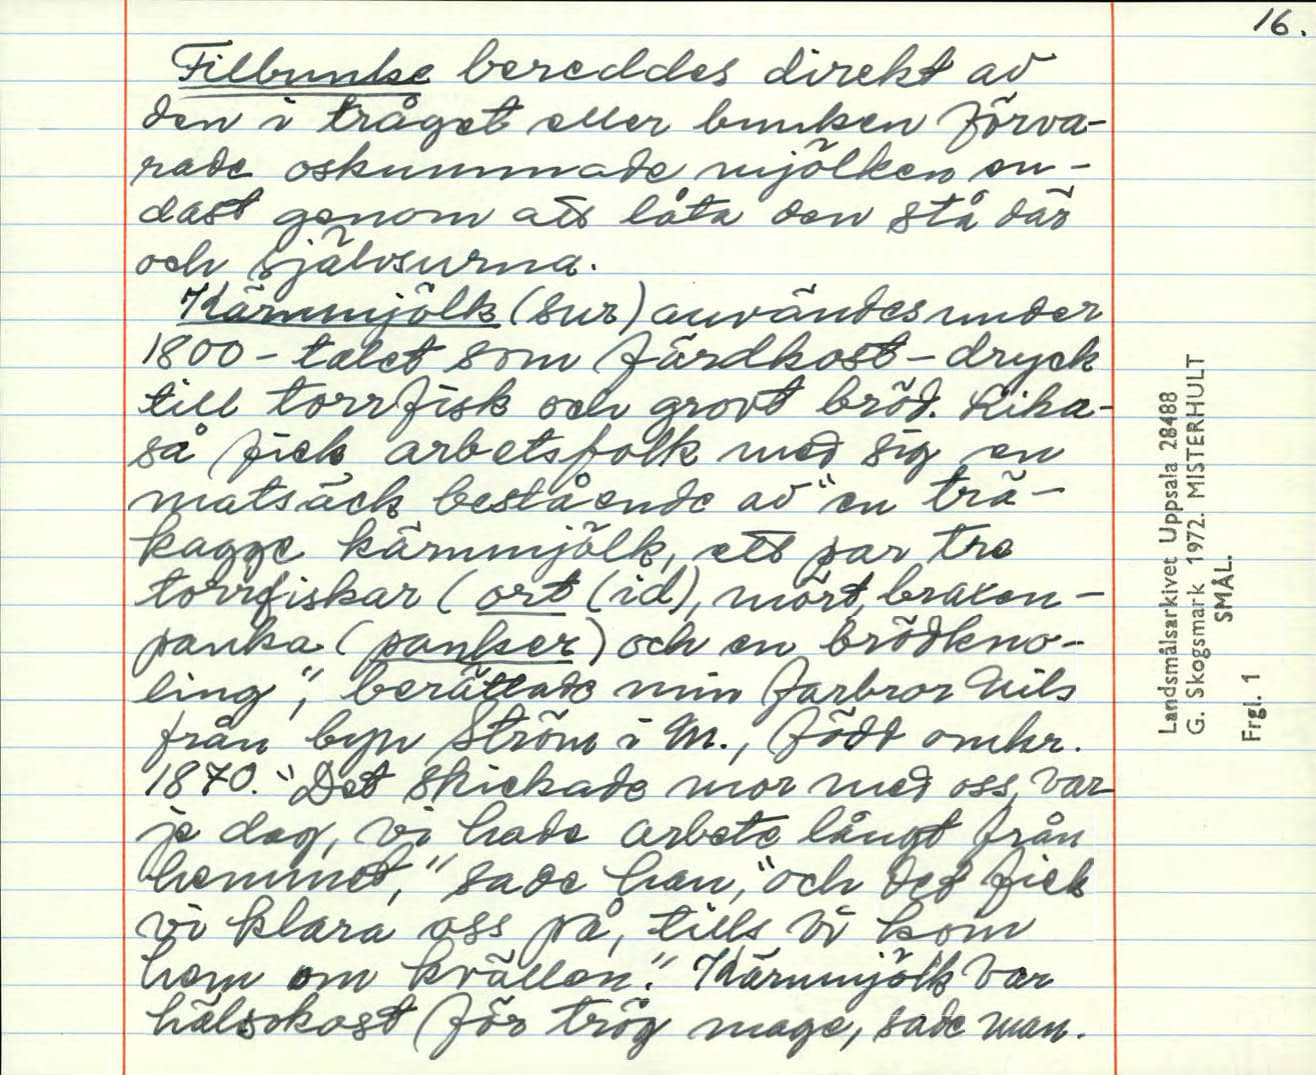 16.
Filbunke bereddes direkt av
den i tråget eller bunken förva-
rade oskummade mjölken en-
dast genom att låta den stå där
och självsurna.
Kärnmjölk (sur) användes under
1800-talet som färdkost-dryck
till torrfisk och grovt bröd. Lika-
så fick arbetsfolk med sig en
matsäck bestående av "en trä-
kagge kärnmjölk, ett par tre
torrfiskar (ort (id), mört, braxen-
panka (panker) och en brödkno-
ling", berättade min farbror Nils
från byn Ström i M., född omkr.
1870. "Det skickade mor med oss var-
je dag, vi hade arbete långt från
hemmet," sade han, "och det fick
vi klara oss på, tills vi kom
hem om kvällen." Kärnmjölk var
hälsokost för trög mage, sade man.
Landsmålsarkivet Uppsala 28488
G. Skogsmark 1972. MISTERHULT
SMÅL.
Frgl. 1